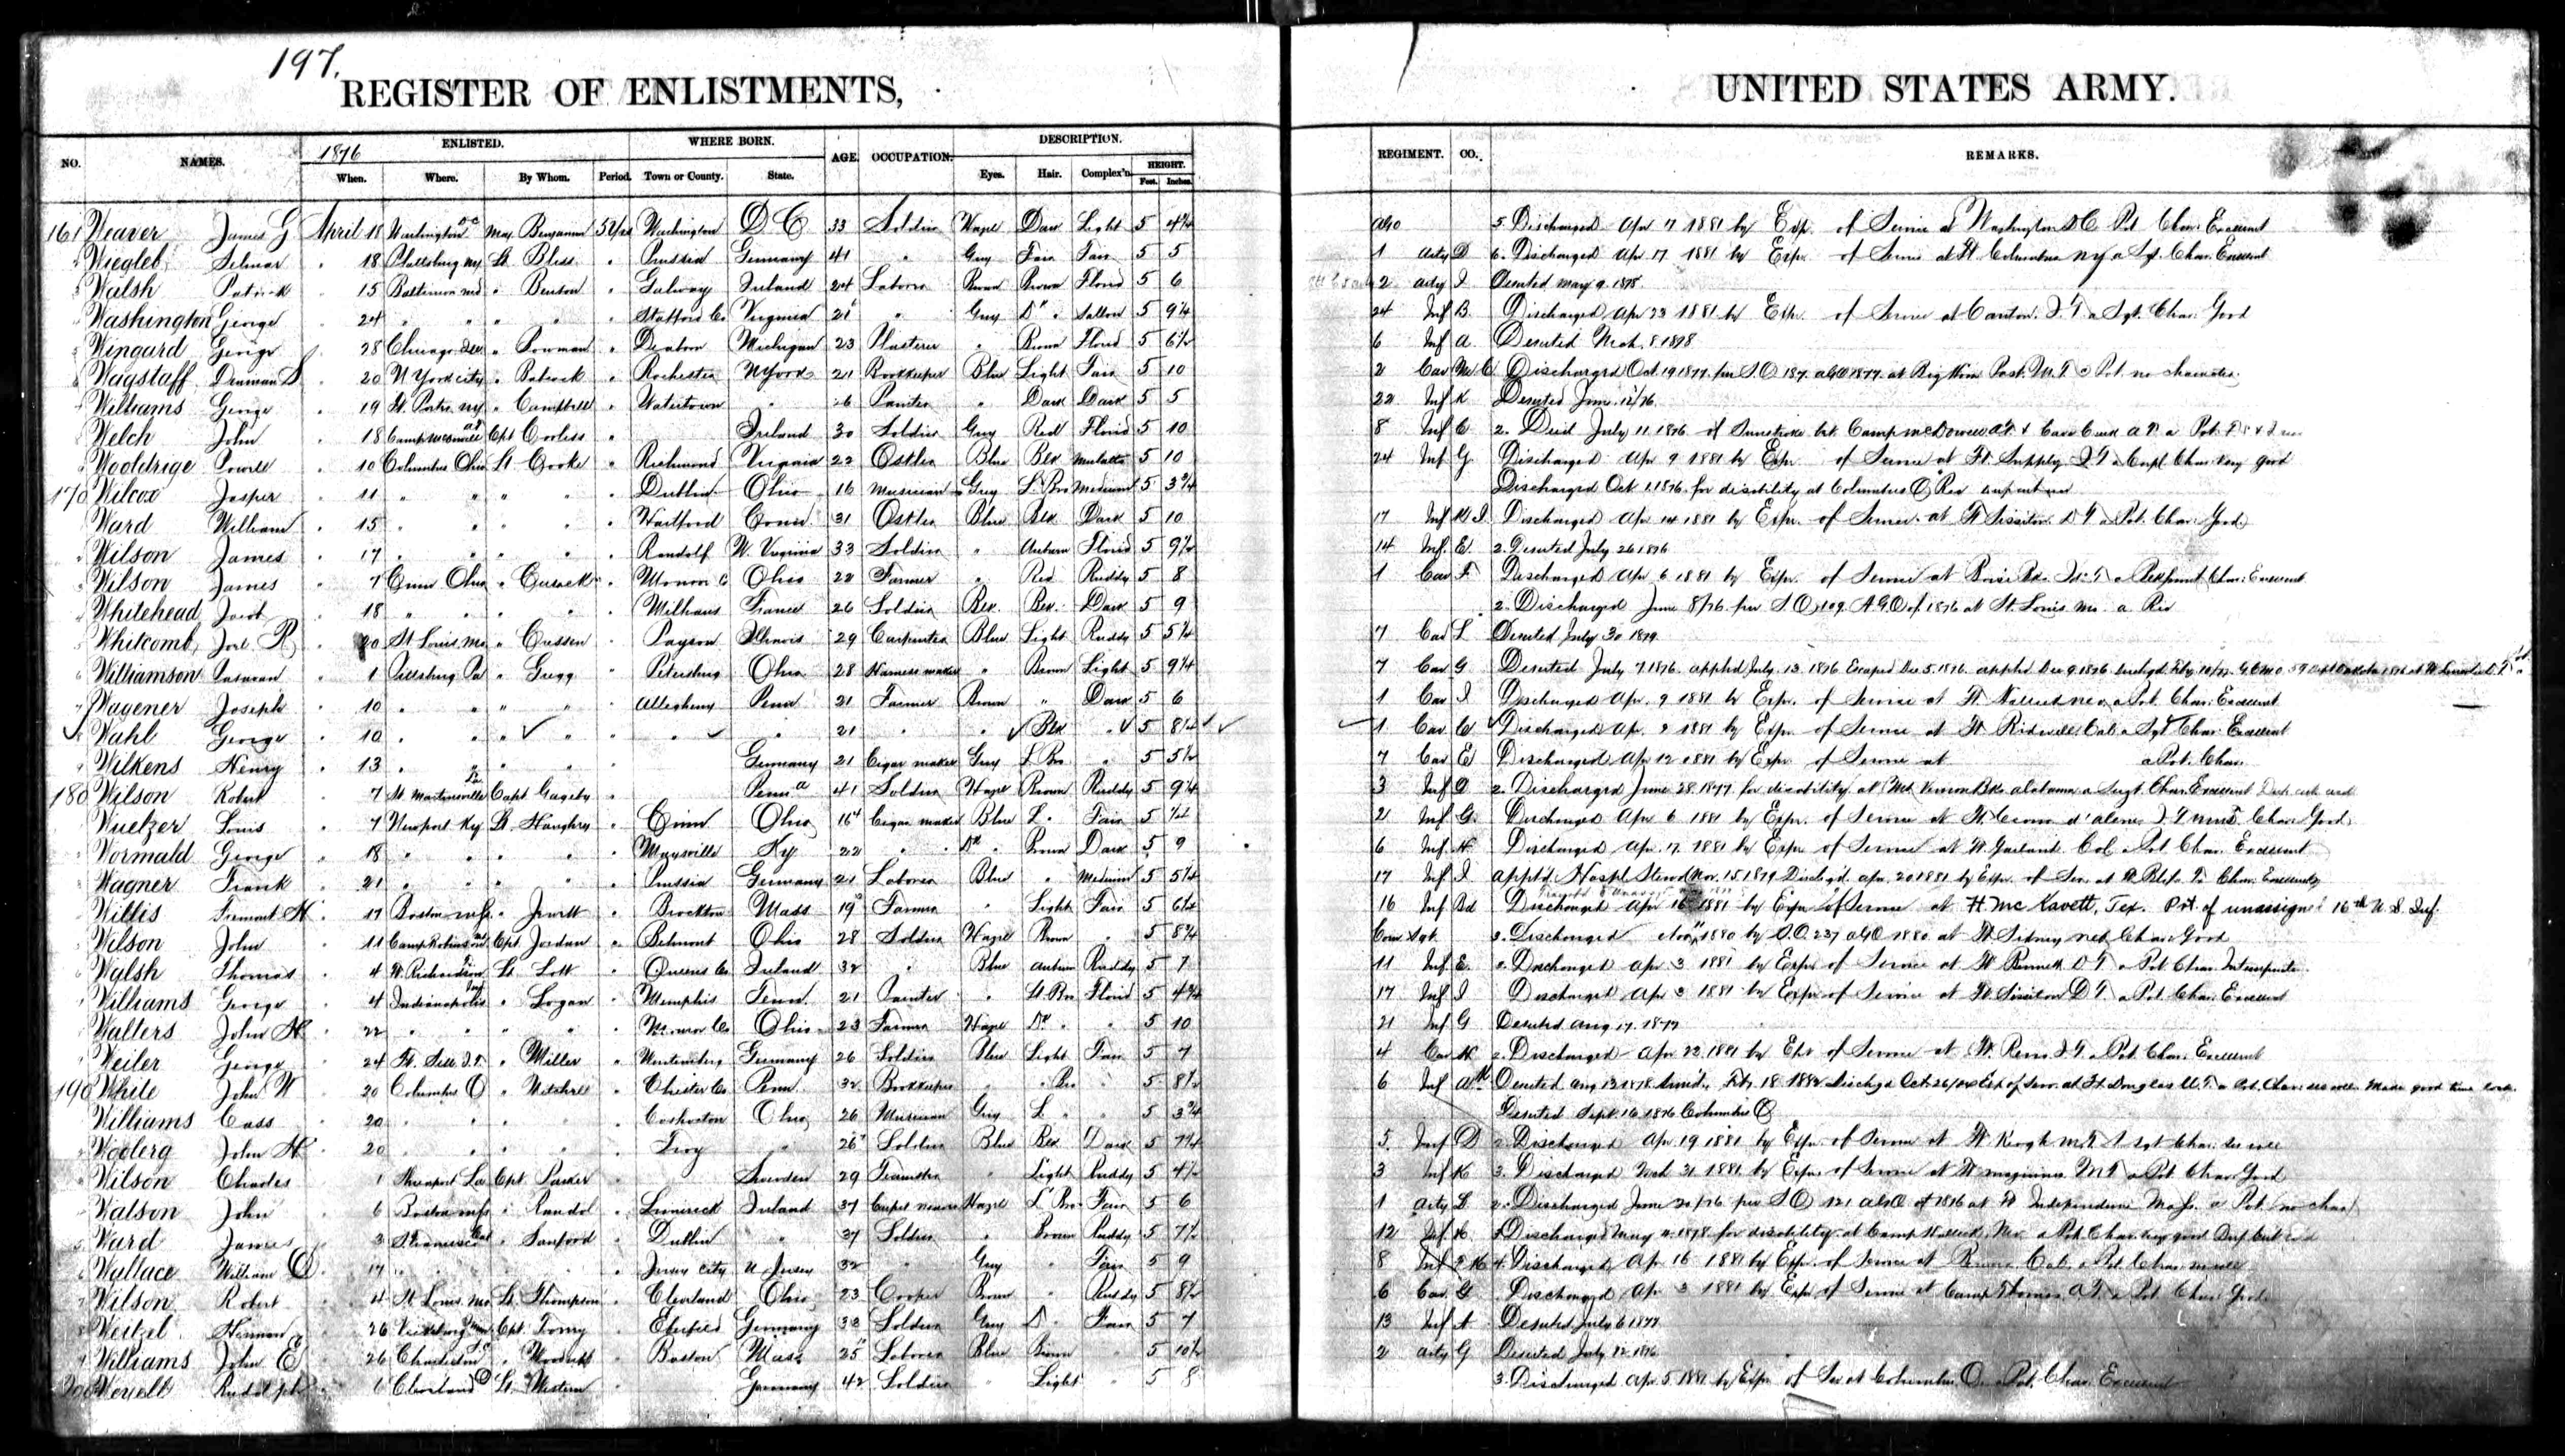 197.
REGISTER OF ENLISTMENTS, UNITED STATES ARMY.
NO. NAMES. 1876 ENLISTED. When. Where. By Whom. Period. WHERE BORN. Town or County. State. AGE. OCCUPATION. DESCRIPTION. Eyes. Hair. Complex'n. HEIGHT. Feet. Inches. REGIMENT. CO. REMARKS.
161 Weaver James G April 18 Washington DC Maj. Benjamin 5 Yrs Washington D C 33 Soldier Hazel Dark Light 5 4¾ AGO 5. Discharged Apr 17 1881 by Exp. of Service at Washington DC Pvt Char. Excellent
Wiegleb 18 Plattsburg NY Lt. Bliss " Prussia Germany 41 " Grey Fair Fair 5 5 1 Arty D 6. Discharged Apr 17 1881 by Exp. of Service at Ft Columbus NY a Sgt. Char. Excellent
Walsh Patrick " 15 Baltimore Md " Benson " Galway Ireland 24 Laborer Brown Brown Florid 5 6 2 Arty I Deserted May 9. 1878
Washington George " 24 " " " " " Stafford Co Virginia 21 " Grey D " Sallow 5 9¼ 24 Inf B. Discharged Apr 23 1881 by Exp. of Service at Canton. I.T. a Sgt. Char. Good
Wingard George 28 Chicago Ills " Bowman " Michigan 23 Plasterer " Brown Florid 5 6½ 6 Inf A. Deserted Mch. 8 1878
Wagstaff S 20 N York City " Babcock " Rochester N York 21 Bookkeeper Blue Light Fair 5 10 2 Cav Discharged Oct. 19 1877. per S.O 187. AGO 1877. at Big Horn Post. M.T. a Pvt. no character.
Williams George " 19 Ft. Porter NY " Campbell " Watertown " 26 Painter " Dark Dark 5 5 22 Inf K Deserted June. 12/76.
Welch John " 18 Camp McDowell AT Cpt Corliss " Ireland 30 Soldier Grey Red Florid 5 10 8 Inf C 2. Died July 11. 1876 of Sunstroke bet. Camp McDowell A.T. & Cave Creek A.T. a Pvt.
Wooldrige Powell " 10 Columbus Ohio Lt Crooke " Richmond Virginia 22 Ostler Blue Blk Mulatto 5 10 24 Inf G Discharged Apr 9 1881 by Exp. of Service at Ft. Supply I.T. a Corpl Char. Very good
170 Wilcox Jasper " 11 " " " " Dublin Ohio 16 Musician Grey L. Bro Medium 5 3¾ Discharged Oct 1. 1876. for disability at Columbus O. Rec
Ward William " 15 " " " " " Hartford Conn 31 Ostler Blue Blk Dark 5 10 17 Inf K I Discharged Apr 14 1881 by Exp. of Service at Ft Sisseton D T a Pvt. Char. Good
Wilson James " 17 " " " " " Randolf W. Virginia 33 Soldier " Auburn Florid 5 9½ 14 Inf. E. 2. Deserted July 26 1876
Wilson James " 7 Cinn Ohio " Cusack " Monroe C Ohio 22 Farmer " Red Ruddy 5 8 1 Cav F Discharged Apr 6 1881 by Exp. of Service at Boise Bks. Char. Excellent
Whitehead Jacob " 18 " " " " France 26 Soldier Blk. Blk. Dark 5 9 2. Discharged June 8/76 per S.O. 109. A.G.O of 1876 at St. Louis Mo. a Rec
Whitcomb R. " 20 St Louis Mo " Cressen " Payson Illinois 29 Carpenter Blue Light Ruddy 5 5¼ 7 Cav L Deserted July 30 1879
Williamson " 1 Pittsburg Pa " Gregg " Petersburg Ohio 28 Harness maker " Brown Light 5 9¼ 7 Cav G Deserted July 7. 1876. appd July. 13. 1876 Escaped Dec 5. 1876. appd Dec 9. 1876.
Wagener Joseph " 10 " " " " " Allegheny Penn 21 Farmer Brown " Dark 5 6 1 Cav I Discharged Apr. 9 1881 by Exp. of Service at Ft. Halleck Nev. a Pvt. Char. Excellent
Wahl George " 10 " " " " " " " 21 " " Blk " 5 8¼ 1 Cav C Discharged Apr. 9 1881 by Exp. of Service at Ft. Bidwell Cal. a Sgt Char. Excellent
Wilkens Henry " 13 " " " " " Germany 21 Cigar maker Grey L Bro " 5 5½ 7 Cav E Discharged Apr 12 1881 by Exp. of Service at a Pvt. Char.
180 Wilson Robert " 7 St. Martinsville La Capt. Gageby " Penn a 41 Soldier Hazel Brown Ruddy 5 9¼ 3 Inf 2. Discharged June 28 1877 for disability at Mt Vernon Bks Alabama a Sergt. Char. Excellent
Wuetzer Louis " 7 Newport Ky Lt. Haughey " Cinn Ohio 16 Cigar maker Blue L. Fair 5 ½ 2 Inf G. Discharged Apr 6 1881 by Exp. of Service at Ft. Coeur d'alene I T Char. Good
Wormald George " 18 " " " " " Maysville Ky 22 " Dk " Brown Dark 5 9 6 Inf H Discharged Apr. 17 1881 by Exp. of Service at Ft Garland Col. a Pvt. Char. Excellent
Wagner Frank " 21 " " " " " Prussia Germany 21 Laborer Blue " Medium 5 5¼ 17 Inf I Apptd. Hospl. Steward Nov. 15 1879 Dischgd. Apr. 20 1881 by Exp. of Ser. at Char. Excellent
Willis Fremont H. " 17 Boston Mass " Jewett " Brockton Mass 19 Farmer " Light Fair 5 6¼ 16 Inf Bd Discharged Apr 16 1881 by Exp. of Service at Ft Mc Kavett, Tex. Pvt of unassigned 16th U.S. Inf.
Wilson John " 11 Camp Robinson Cpt. Jordan " Belmont Ohio 28 Soldier Hazel Brown " 5 8¾ Com Sgt 3. Discharged Nov. 1880 by S.O. 237 AGO 1880. at Ft. Sidney Neb. Char. Good
Walsh Thomas " 4 Ft. Richardson Lt Lott " Queens Co Ireland 32 " Blue Auburn Ruddy 5 7 11 Inf E. Discharged Apr 3 1881 by Exp. of Service at Ft Bennett D T a Pvt. Char. Intemperate
Williams George " 4 Indianapolis Ind " Logan " Memphis Tenn. 21 Painter " Lt Bro Florid 5 4¾ 17 Inf I Discharged Apr 3 1881 by Exp. of Service at Ft. Sisseton D T. a Pvt. Char. Excellent
Walters John H. 22 " " " " " Monroe Co Ohio 23 Farmer Hazel Dk " " 5 10 21 Inf G Deserted Aug 17. 1877
Weiler George 24 Ft. Sill I.T. " Miller " Wurtemberg Germany 26 Soldier Blue Light Fair 5 7 4 Cav H 2. Discharged Apr 22 1881 by Exp of Service at Ft. Reno I.T. a Pvt. Char. Excellent
190 White John W 20 Columbus O " Mitchell " Chester Co Penn. 32 Bookkeeper " " Bro " 5 8½ 6 Inf Deserted Aug 13 1878 Feb. 18. 1882 Dischgd Oct. 26/84 Exp of Serv. at Ft. Douglas U.T. a Pvt. Char. Made good time lost.
Williams Cass 20 " " " " Coshocton Ohio 26 Musician Grey L. " " 5 3¾ Deserted Sept. 16 1876 Columbus O.
John H 20 " " " " Troy " 26 Soldier Blue Blk Dark 5 7¼ 5 Inf D 2. Discharged Apr 19 1881 by Exp. of Service at Ft Keogh M.T.
Wilson Charles 1 Shreveport La Cpt. Parker " Sweden 29 Teamster " Light Ruddy 5 4½ 3 Inf K 3. Discharged Mch 31 1881 by Exp. of Service at Ft Maginnis M T a Pvt. Char. Good
Watson John 6 Boston Mass " Randol " Limerick Ireland 37 Carpet weaver Hazel L Bro Fair 5 6 1 Arty L 2. Discharged June 20/76 per S.O. 121 AGO of 1876 at Ft Independence Mass. a Pvt. no char
Ward James 3 S Francisco Cal " Sanford " Dublin " 37 Soldier " Brown Ruddy 5 7½ 12 Inf K. Discharged May 1878 for disability at Camp Halleck, Nev. a Pvt. Char. very good
Wallace William O. 17 " " Jersey City N Jersey 32 " Grey " Fair 5 9 8 Inf 4. Discharged Apr 16 1881 by Exp. of Service at Cal. a Pvt. Char.
Wilson Robert 4 St Louis Mo Lt. Thompson " Cleveland Ohio 23 Cooper Brown " Ruddy 5 8½ 6 Cav G Discharged Apr 3 1881 by Exp of Service at Camp Thomas A.T. a Pvt Char. Good
Weitzel Herman 26 Vicksburg Miss Cpt. Germany 33 Soldier Grey D " Fair 5 7 13 Inf A Deserted July 6 1877
Williams John E 26 Charleston S.C. Boston Mass 25 Laborer Blue Brown " 5 10½ 2 Arty G Deserted July 12. 1876
200 Rudolph 6 Cleveland O Lt. Germany 42 Soldier " Light " 5 8 3. Discharged Apr. 5 1881 by Exp of Ser. at Columbus O. a Pvt. Char. Excellent